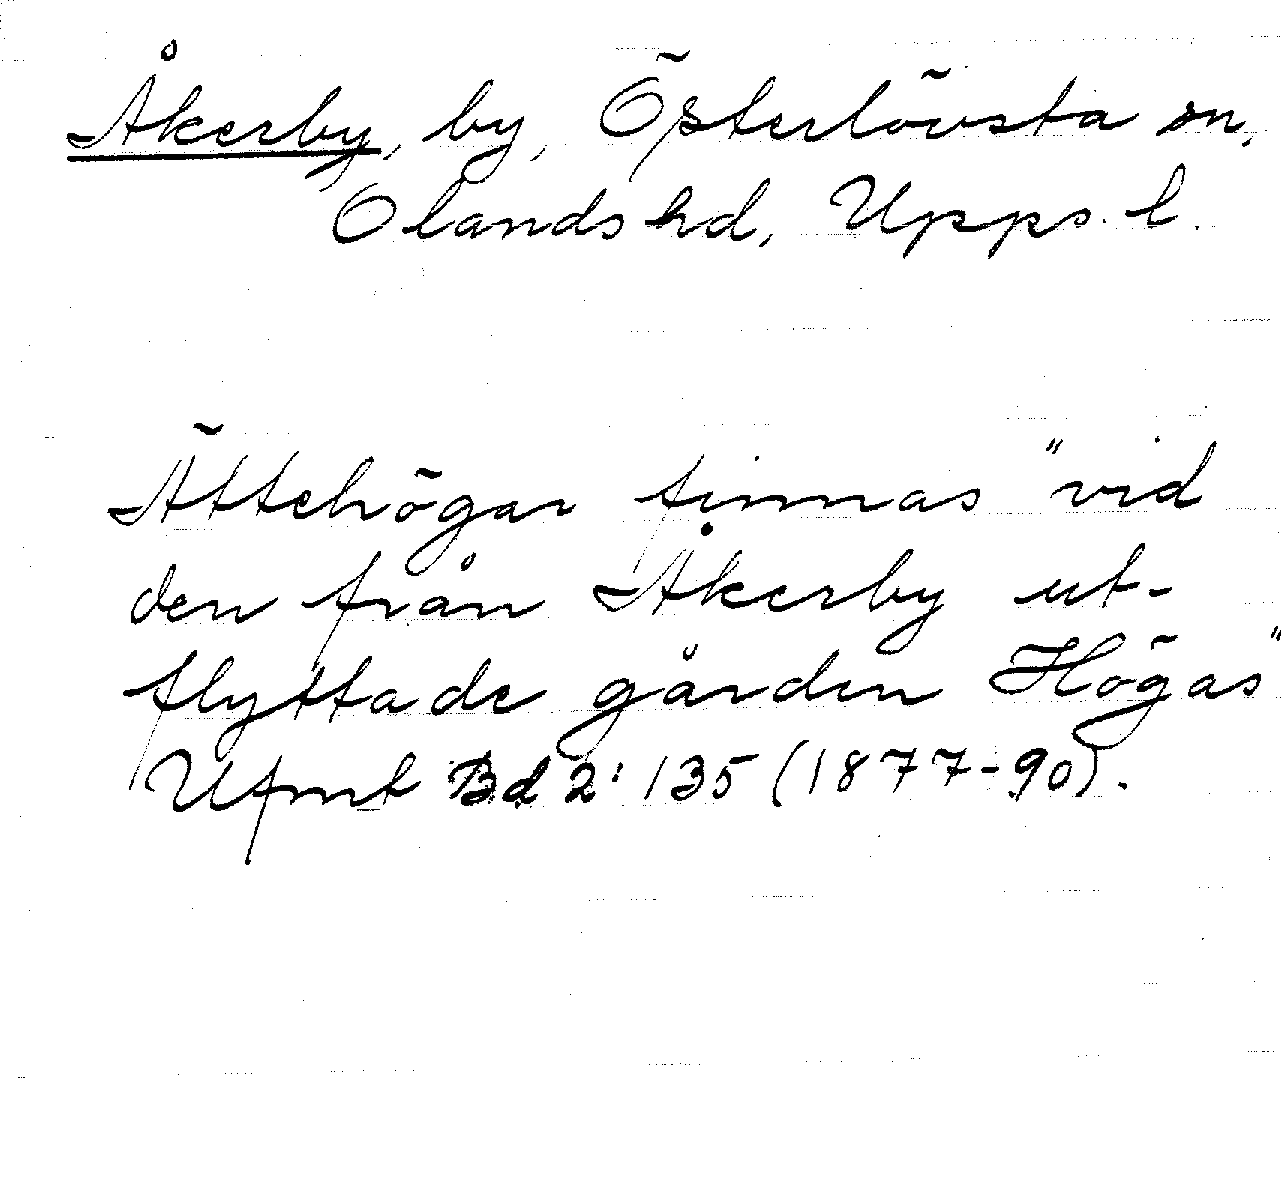 Åkerby, by, Österlövsta sn,
Olands hd, Upps. l.
Ättehögar finnas "vid
den från Åkerby ut-
flyttade gården Högas"
Ufmt Bd 2: 135 (1877-90).